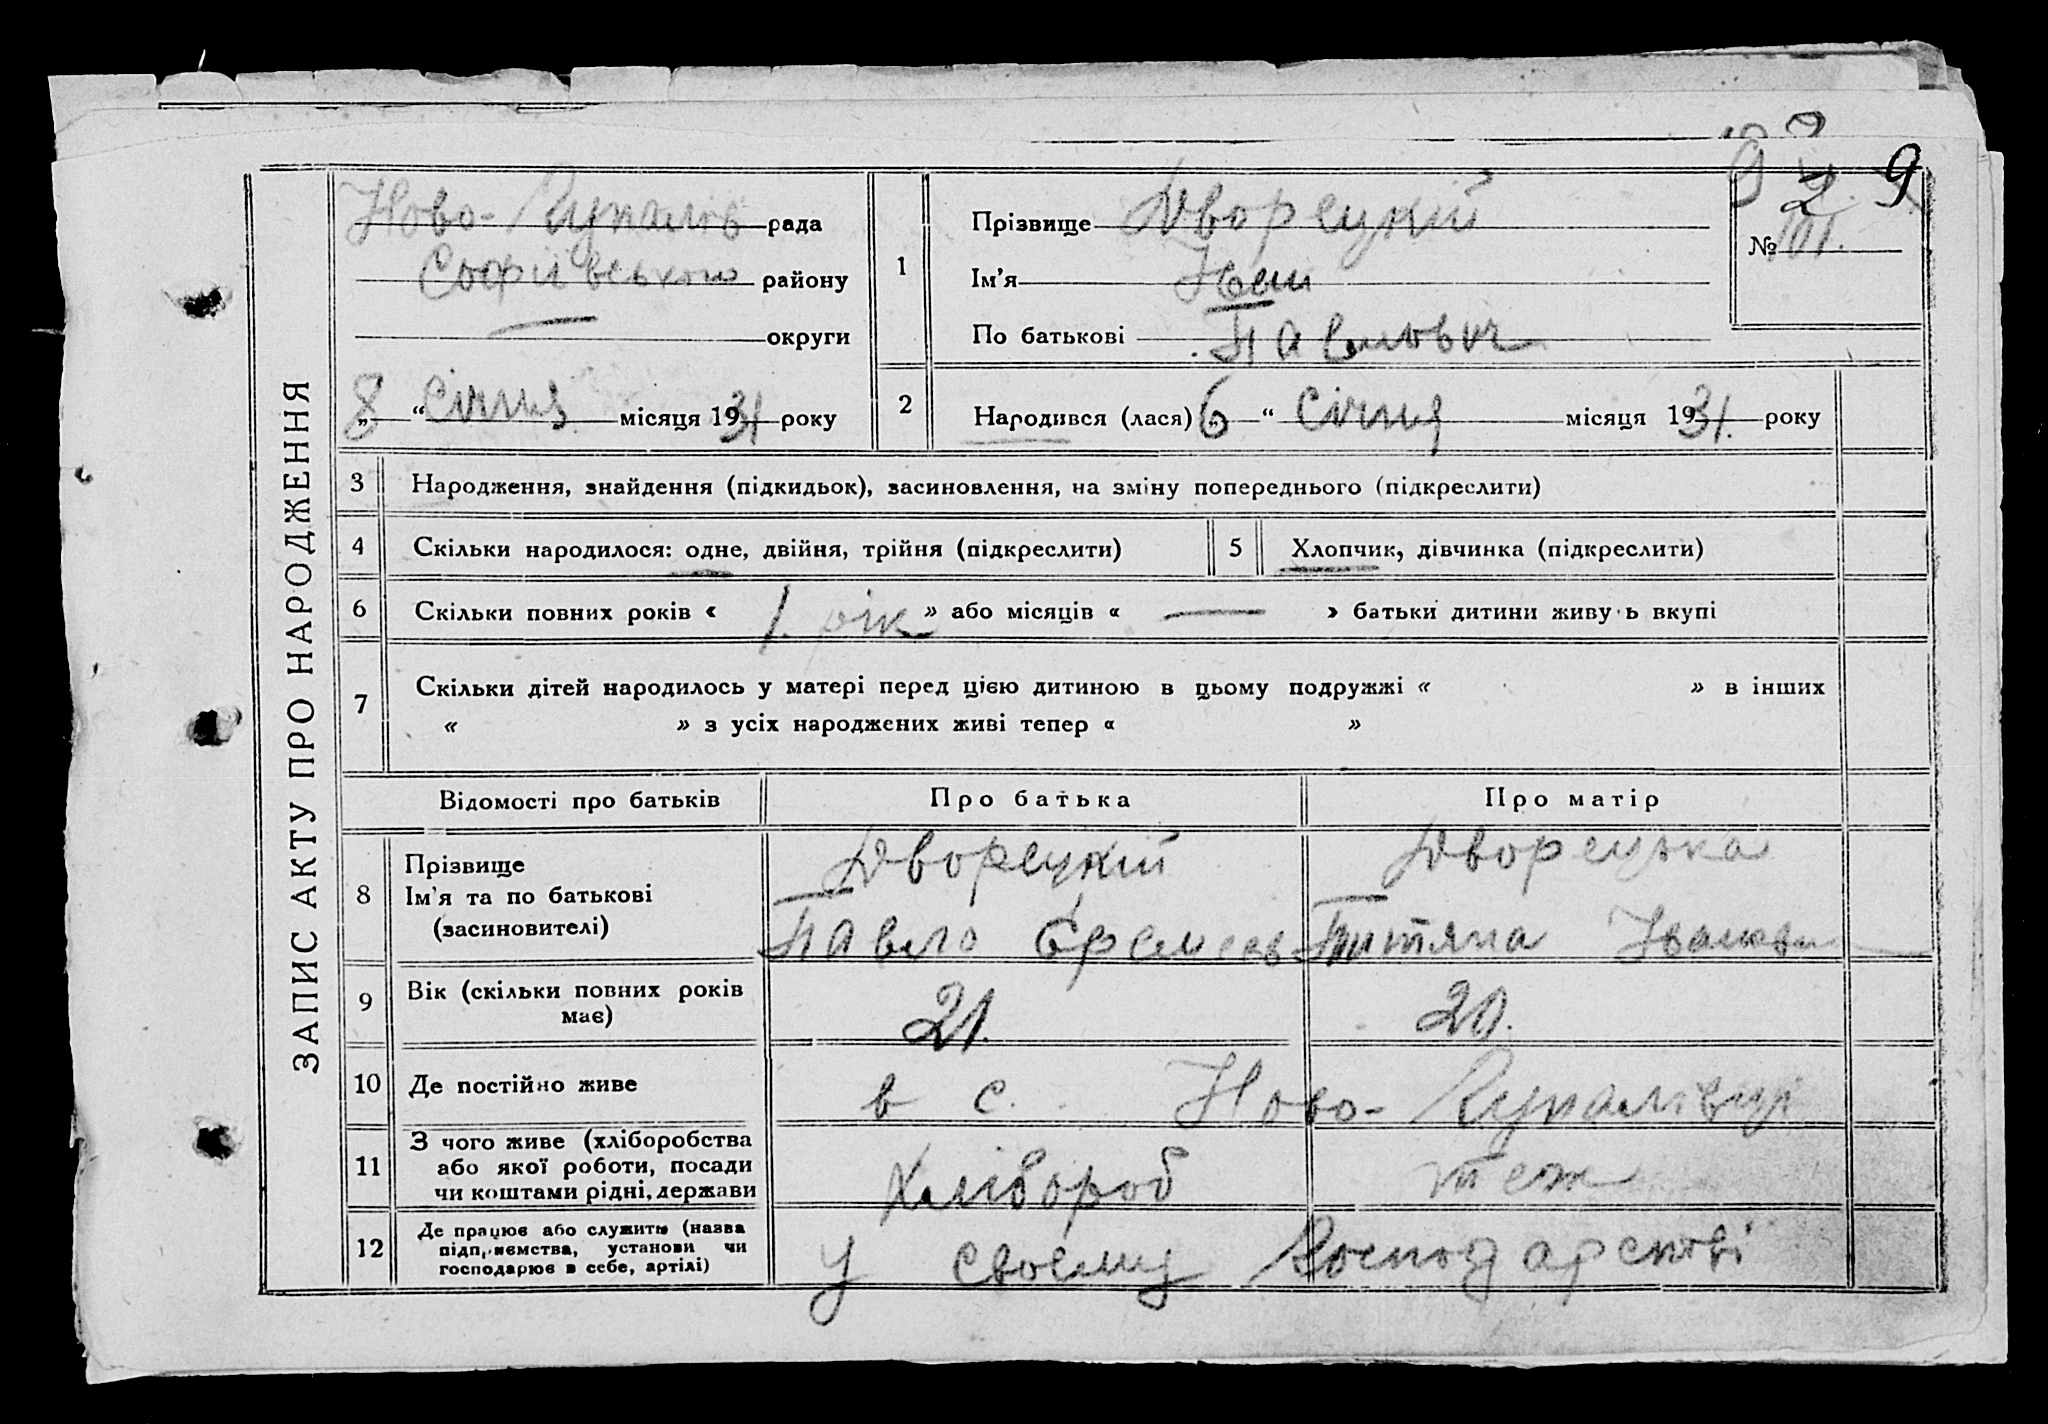 ЗАПИС АКТУ ПРО НАРОДЖЕННЯ
9
Ново- рада
Софіївського району
округи
„8“ Січня місяця 1931 року
1
Прізвище Дворецкій
Ім'я
По батькові Павлович
№
2
Народився (лася) „6“ Січня місяця 1931. року
3 Народження, знайдення (підкидьок), засиновлення, на зміну попереднього (підкреслити)
4 Скільки народилося: одне, двійня, трійня (підкреслити) 5 Хлопчик, дівчинка (підкреслити)
6 Скільки повних років « 1. рік » або місяців « — » батьки дитини живу ь вкупі
7 Скільки дітей народилось у матері перед цією дитиною в цьому подружжі « » в інших
« » з усіх народжених живі тепер « »
Відомості про батьків Про батька Про матір
8 Прізвище Дворецкій Дворецька
Ім'я та по батькові
(засновителі) Павло Татяна
9 Вік (скільки повних років має) 21. 20.
10 Де постійно живе в с. Ново-
11 З чого живе (хліборобства
або якої роботи, посади
чи коштами рідні, держави Хлібороб теж
12 Де працює або служить (назва
підприємства, установи чи
господарює в себе, артілі) у своєму господарстві